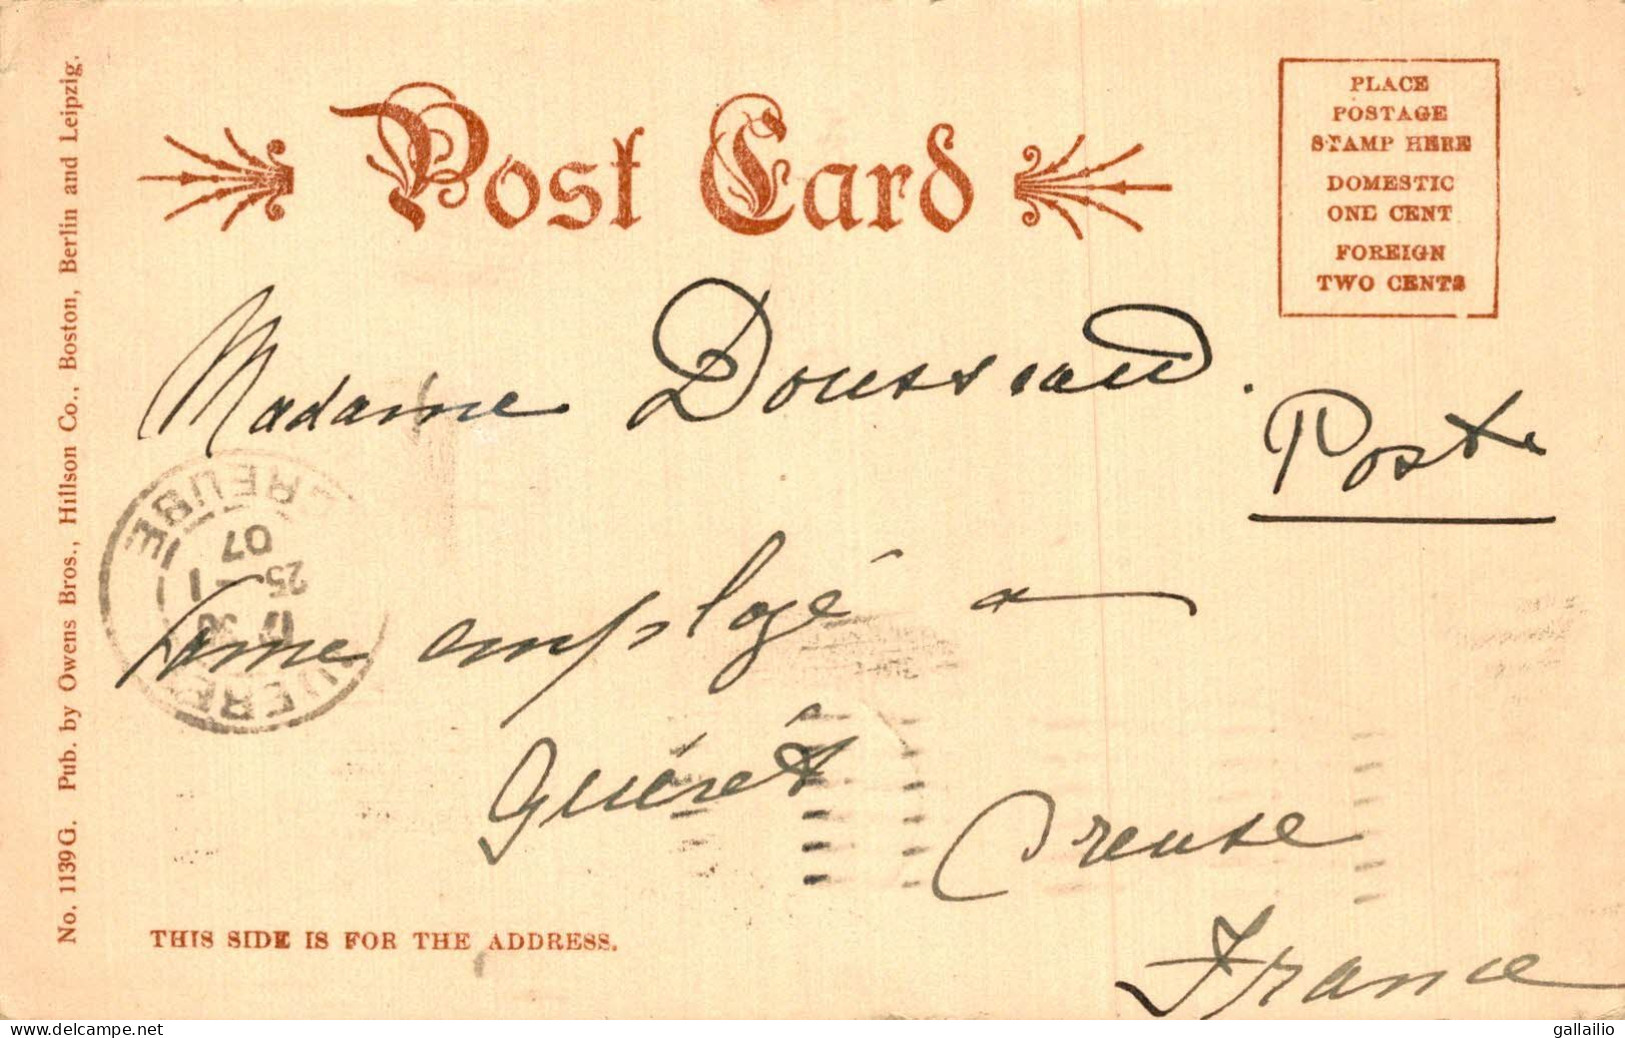 Post Card
PLACE
POSTAGE
STAMP HERE
DOMESTIC
ONE CENT
FOREIGN
TWO CENTS
No. 1139 G. Pub. by Owens Bros., Hillson Co., Boston, Berlin and Leipzig.
Madame Dousseaud.
Poste
employé a
Guéret
Creuse
France
CREUSE
25 - 1
07
THIS SIDE IS FOR THE ADDRESS.
www.delcampe.net
gallailio